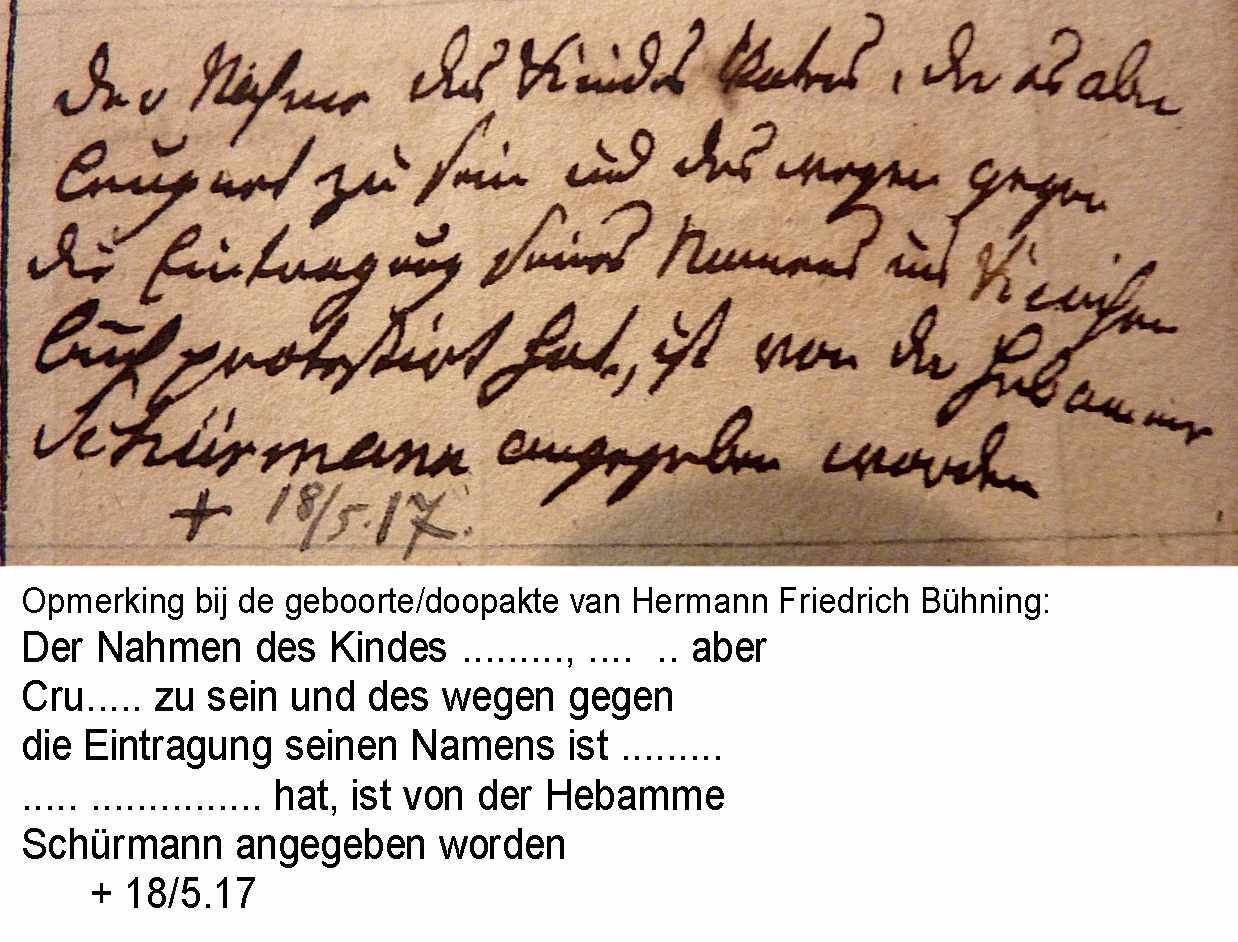 Der Nahme des Kindes Vaters, der es aber
leugnet zu sein und des wegen gegen
die Eintragung seines Namens ins Kirchen
buch protestirt hat, ist von der Hebamme
Schürmann angegeben worden
+ 18/5.17.
Opmerking bij de geboorte/doopakte van Hermann Friedrich Bühning:
Der Nahmen des Kindes ........., .... .. aber
Cru..... zu sein und des wegen gegen
die Eintragung seinen Namens ist .........
..... ............... hat, ist von der Hebamme
Schürmann angegeben worden
+ 18/5.17